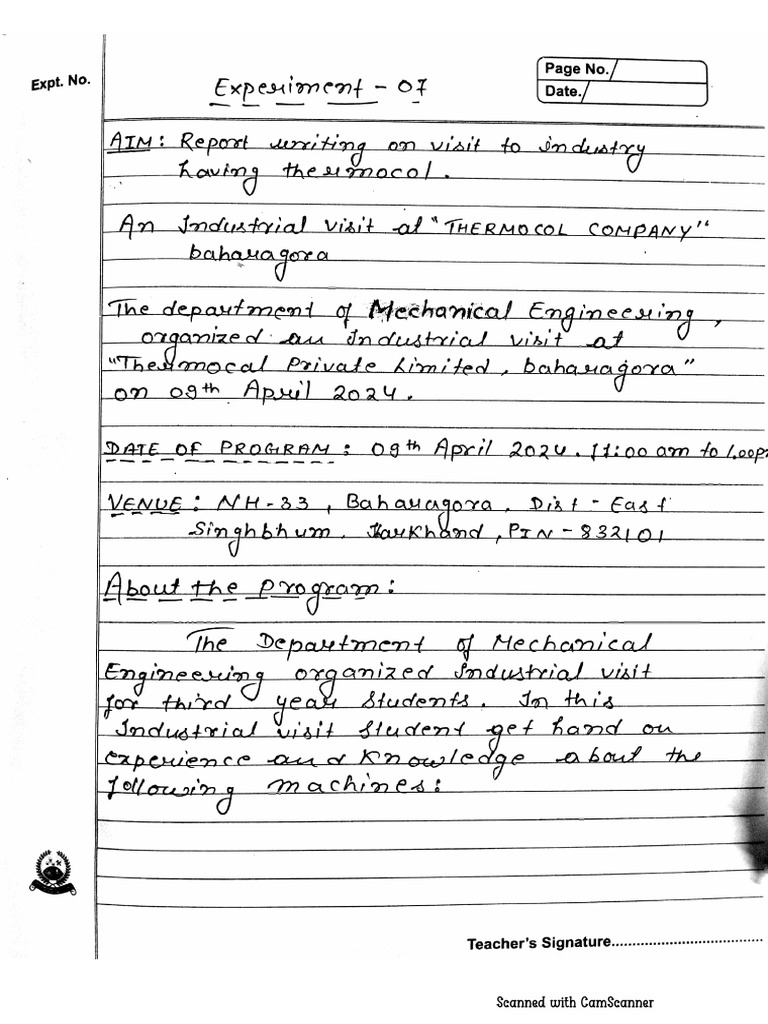 Expt. No.
Experiment - 07
Page No.
Date.
AIM: Report writing on visit to industry
having thermocol.
An Industrial visit at "THERMOCOL COMPANY"
baharagora
The department of Mechanical Engineering,
organized an Industrial visit at
"Thermocal Private Limited, baharagora"
on 09th April 2024.
DATE OF PROGRAM: 09th April 2024. 11:00 am to 1.00p
VENUE: NH-33, Baharagora, Dist - East
Singhbhum, Jharkhand, PIN - 832101
About the program:
The Department of Mechanical
Engineering organized Industrial visit
for third year students. In this
Industrial visit student get hand on
experience and knowledge about the
following machines:
Teacher's Signature....................................
Scanned with CamScanner